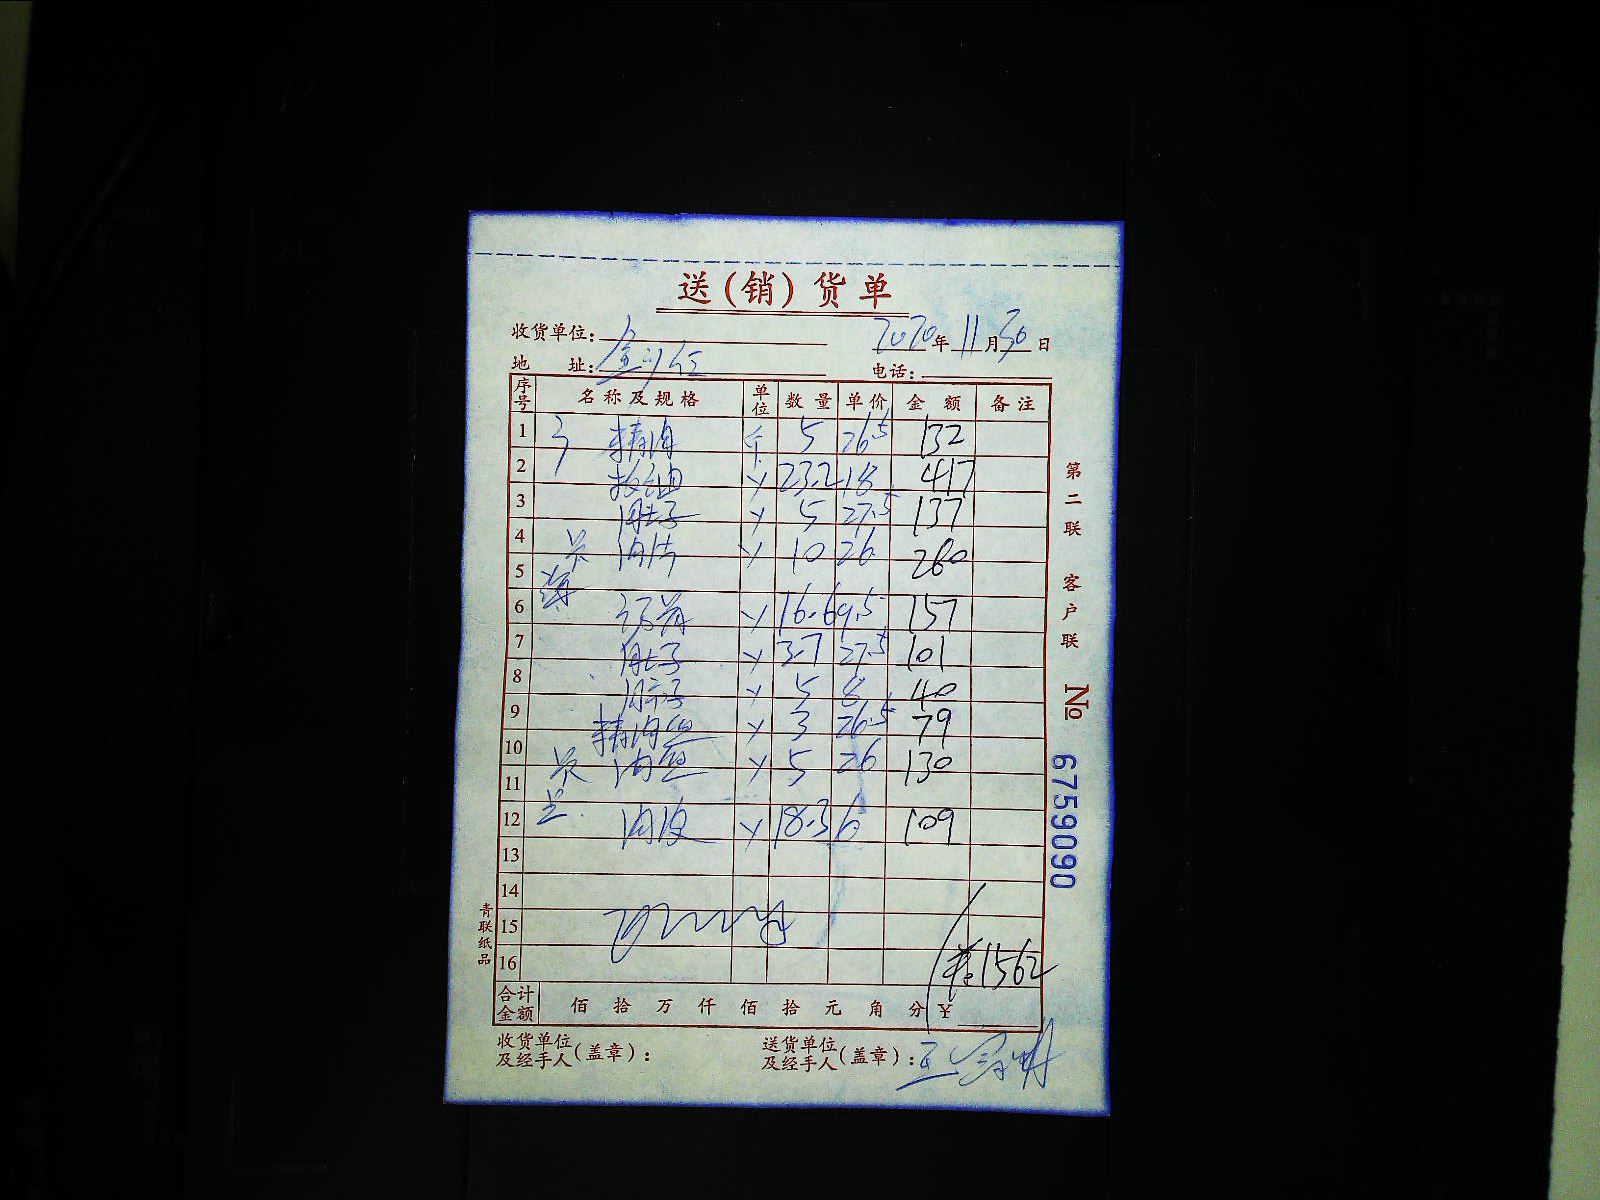 送(销)货单
收货单位:
2020年11月30日
地 址:
电话:
序号 名称及规格 单位 数量 单价 金额 备注
1 精肉 斤 5 26.5 132
2 23.2 18 417
3 肚子 5 27.5 137
4 肉片 10 26 260
5
6 16.6 9.5 157
7 肚子 3.7 27.5 101
8 5 8 40
9 精肉丝 3 26.5 79
10 肉丝 5 26 130
11
12 肉皮 18.3 6 109
13
14
15
16 1562
合计金额 佰 拾 万 仟 佰 拾 元 角 分 ¥
收货单位及经手人(盖章):
送货单位及经手人(盖章):
第二联 客户联
No 6759090
青联纸品